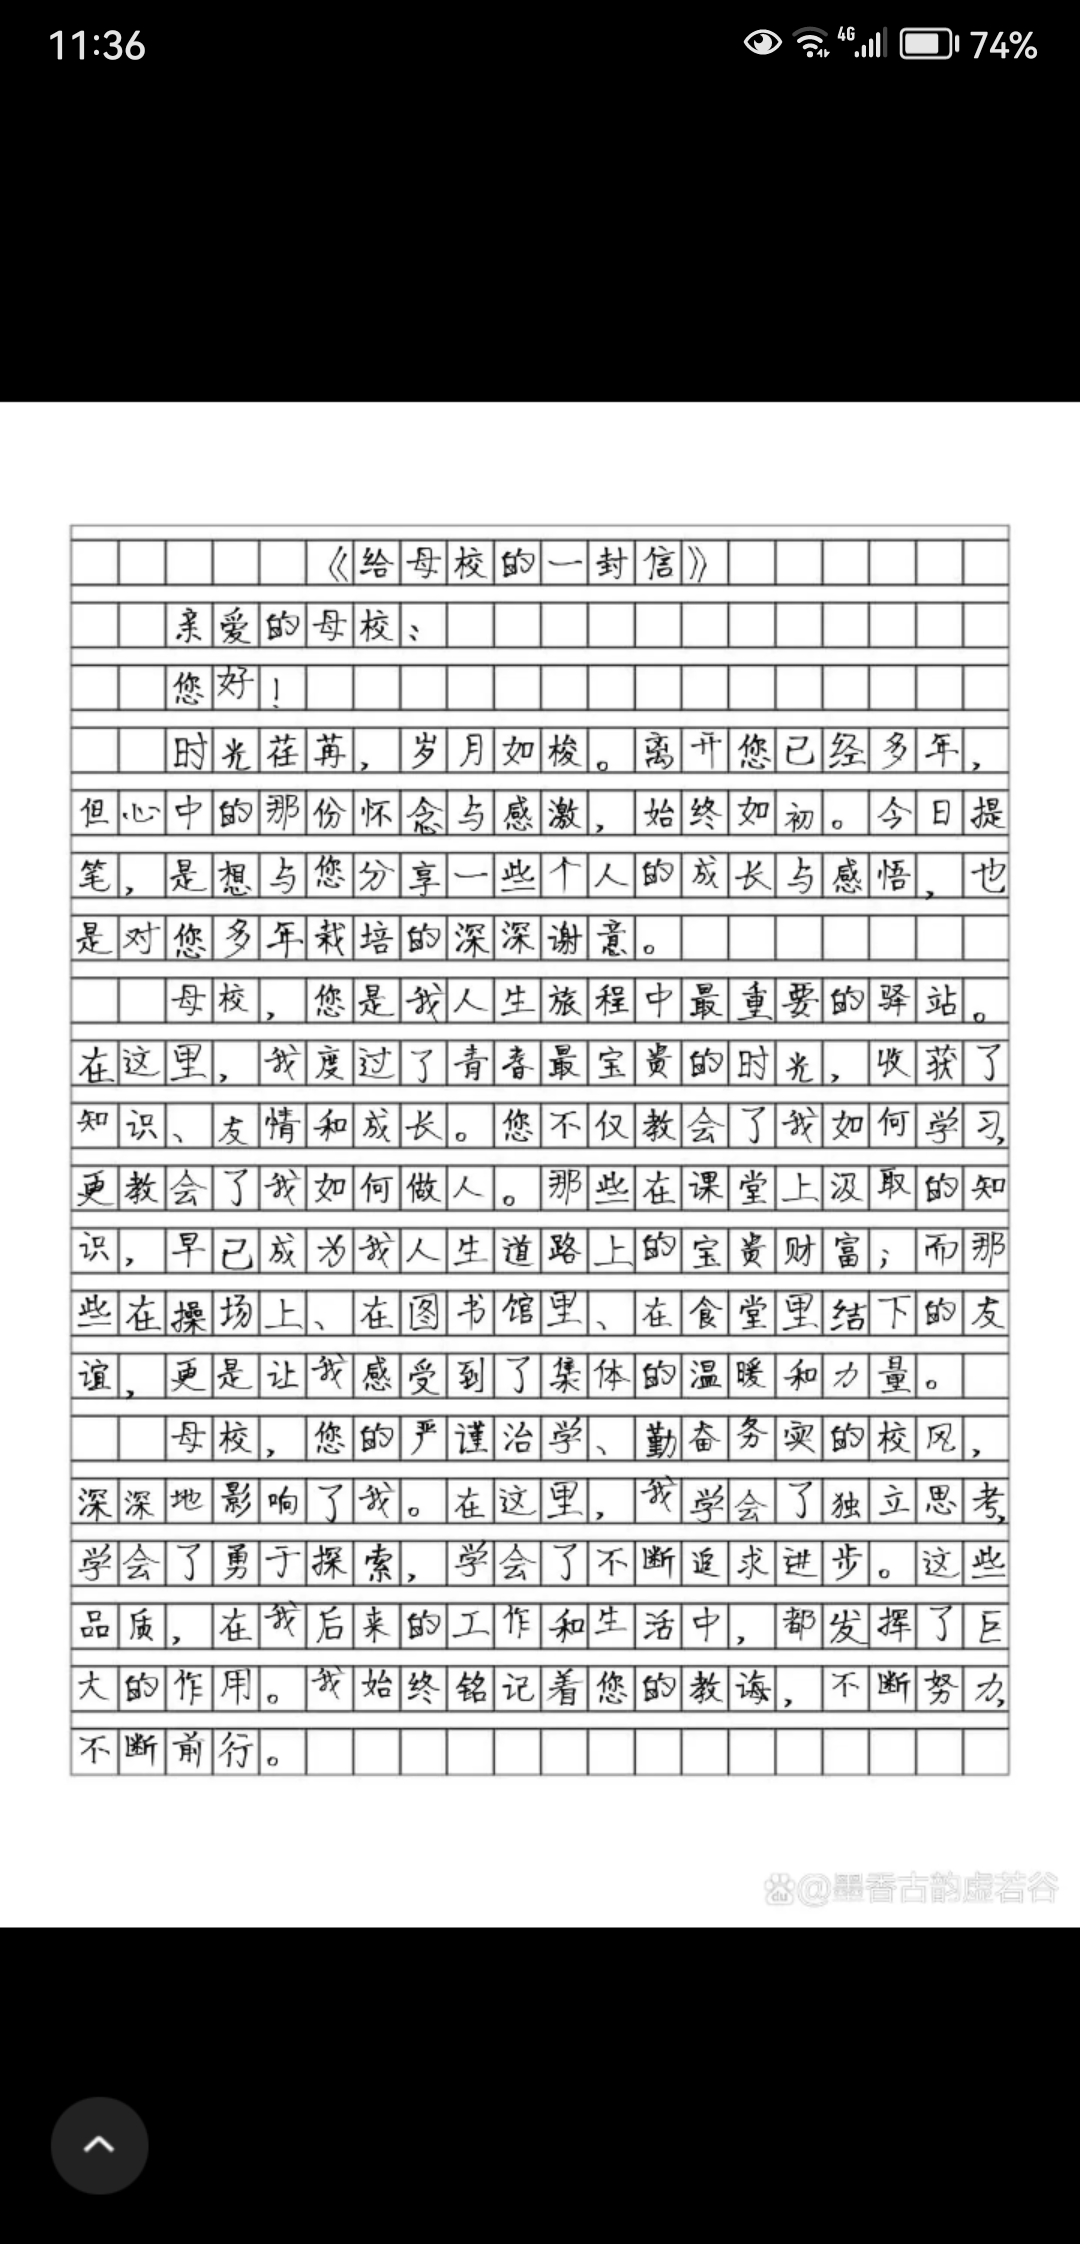 11:36
4G
74%
《给母校的一封信》
亲爱的母校：
您好！
时光荏苒，岁月如梭。离开您已经多年，
但心中的那份怀念与感激，始终如初。今日提
笔，是想与您分享一些个人的成长与感悟，也
是对您多年栽培的深深谢意。
母校，您是我人生旅程中最重要的驿站。
在这里，我度过了青春最宝贵的时光，收获了
知识、友情和成长。您不仅教会了我如何学习，
更教会了我如何做人。那些在课堂上汲取的知
识，早已成为我人生道路上的宝贵财富；而那
些在操场上、在图书馆里、在食堂里结下的友
谊，更是让我感受到了集体的温暖和力量。
母校，您的严谨治学、勤奋务实的校风，
深深地影响了我。在这里，我学会了独立思考，
学会了勇于探索，学会了不断追求进步。这些
品质，在我后来的工作和生活中，都发挥了巨
大的作用。我始终铭记着您的教诲，不断努力，
不断前行。
du @墨香古韵虚若谷